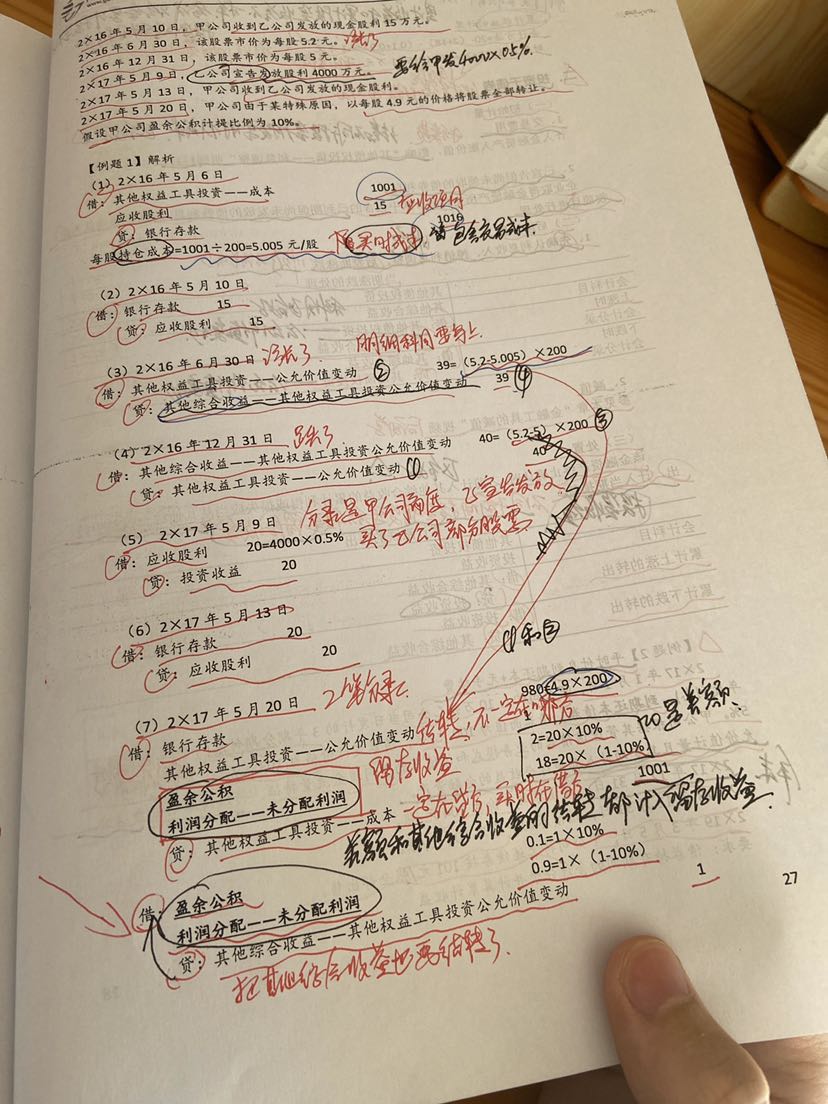 2×16 年 5 月 10 日，甲公司收到乙公司发放的现金股利 15 万元。
2×16 年 6 月 30 日，该股票市价为每股 5.2 元。涨了
2×16 年 12 月 31 日，该股票市价为每股 5 元。
2×17 年 5 月 9 日，乙公司宣告发放股利 4000 万元。 要给甲发4000×0.5%
2×17 年 5 月 13 日，甲公司收到乙公司发放的现金股利。
2×17 年 5 月 20 日，甲公司由于某特殊原因，以每股 4.9 元的价格将股票全部转让。
假设甲公司盈余公积计提比例为 10%。
【例题 1】解析
（1）2×16 年 5 月 6 日
借：其他权益工具投资——成本 1001
应收股利 15 应收项目
贷：银行存款 1016
每股持仓成本=1001÷200=5.005 元/股 包含交易成本.
（2）2×16 年 5 月 10 日
借：银行存款 15
贷：应收股利 15
（3）2×16 年 6 月 30 日 涨了 明细科目要写上
借：其他权益工具投资——公允价值变动 ② 39=（5.2-5.005）×200
贷：其他综合收益——其他权益工具投资公允价值变动 39 ④
（4）2×16 年 12 月 31 日 跌了
借：其他综合收益——其他权益工具投资公允价值变动 40=（5.2-5）×200 ③
贷：其他权益工具投资——公允价值变动 ① 40
（5） 2×17 年 5 月 9 日 分录是甲公司角度，乙宣告发放
借：应收股利 20=4000×0.5% 买了乙公司部分股票
贷：投资收益 20
（6）2×17 年 5 月 13 日
借：银行存款 20
贷：应收股利 20
①和②
（7）2×17 年 5 月 20 日 2笔分录
借：银行存款 980=4.9×200
其他权益工具投资——公允价值变动 结转，不一定在哪方 1
盈余公积 留存收益 2=20×10% 20是差额.
利润分配——未分配利润 18=20×（1-10%）
贷：其他权益工具投资——成本 一定在贷方，买时在借方 1001
差额和其他综合收益的结转都计入留存收益.
借：盈余公积 0.1=1×10%
利润分配——未分配利润 0.9=1×（1-10%）
贷：其他综合收益——其他权益工具投资公允价值变动 1
把其他综合收益也要结转了.
27